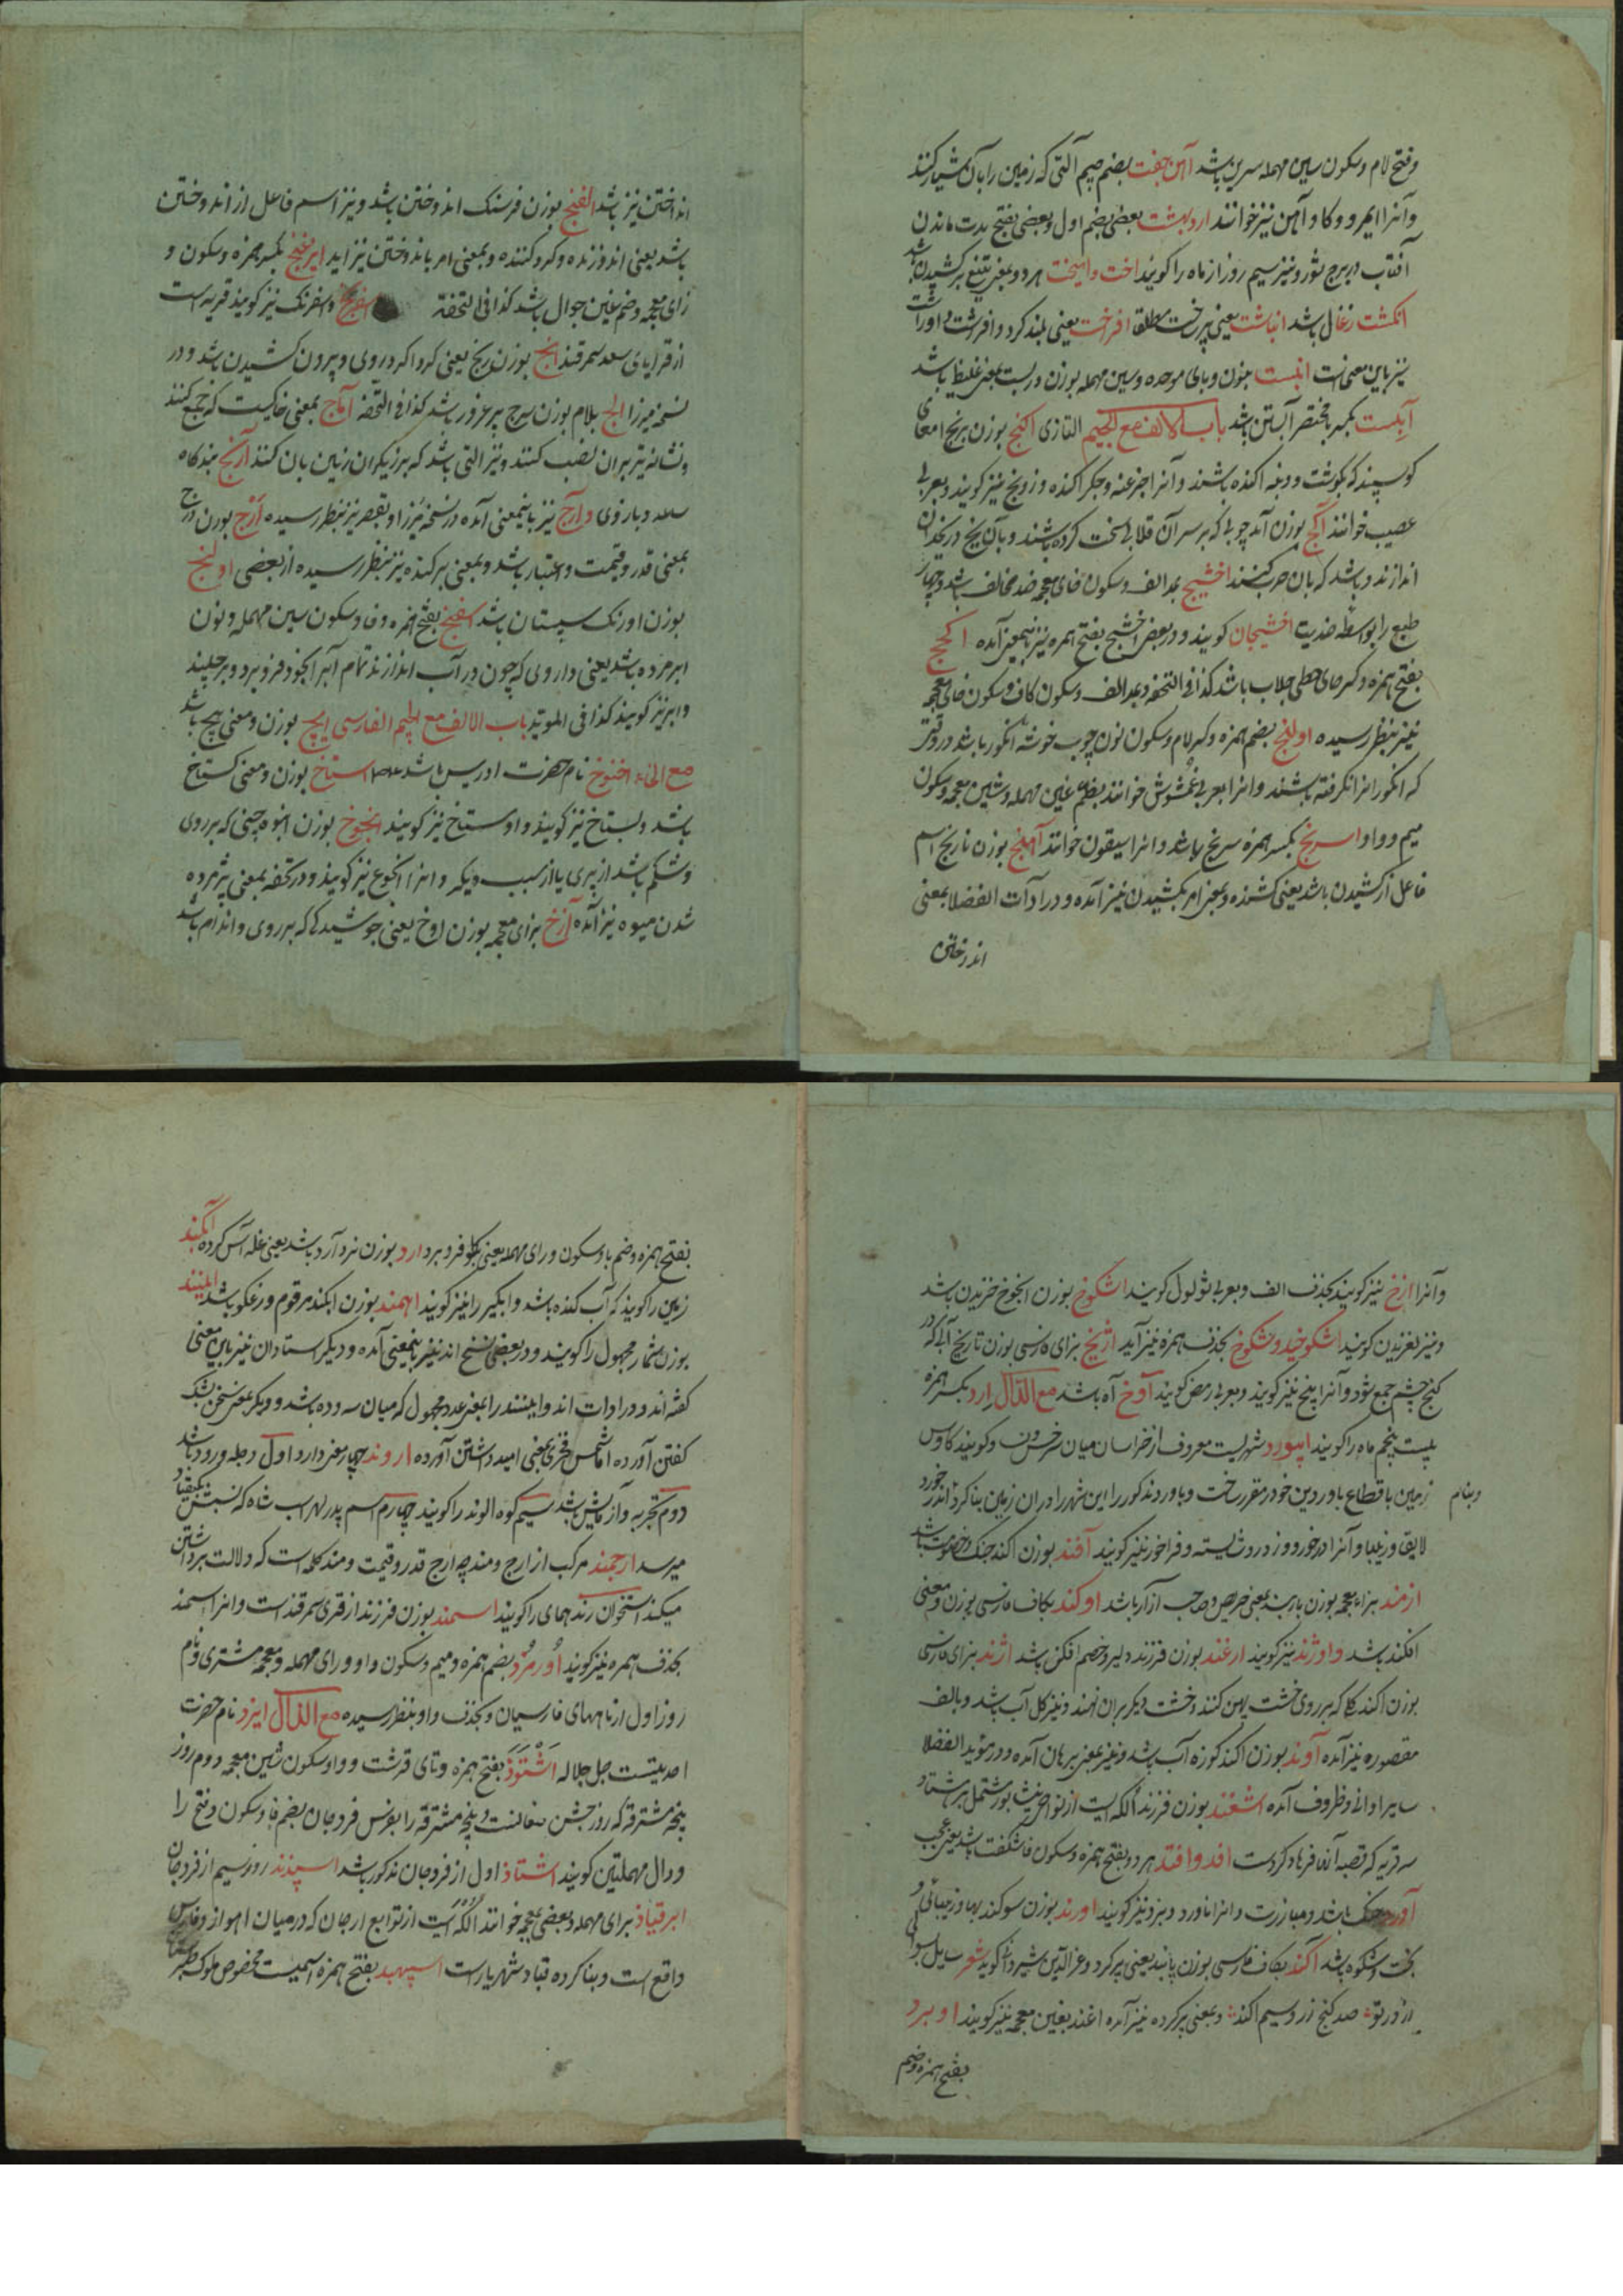 وفتح لام وسکون سین مهمله سرین باشد آهن جفت بضم جیم آلتی که زمین را بآن شیار کنند
وآنرا ایمر و وکاو آهن نیز خوانند اردبهشت بعضی بضم اول وبعضی بفتح مدت ماندن
آفتاب در برج ثور ونیز سیم روز از ماه را کویند اخت واهیخت هر دو بمعنی تیغ برکشیدن باشد
انکشت زغال باشد انباشت یعنی پر ساخت مطلقا افراخت یعنی بلند کرد وافرشت واوراشت
نیز باین معنیست انبست بنون وبای موحده وسین مهمله بوزن دربست بمعنی غلیظ باشد
آبست بکسر با مختصر آبستن باشد باب الالف مع الجیم التازی اکنج بوزن برنج امعای
کوسپند که بکوشت و دنبه اکنده باشند وآنرا جرغند وجکر اکنده وزونج نیز کویند وبعربی
عصیب خوانند آکج بوزن آمد چوبی که بر سر آن قلابی سخت کرده باشند وبآن یخ در یخدان
اندازند وباشد که بان حرب کنند اخشیج بمد الف وسکون خای معجمه ضد مخالف باشد وچهار
طبع را بواسطه ضدیت اخشیجان کویند ودر بعض اخشیج بفتح همزه نیز باینمعنی آمده اکحج
بفتح همزه وکسر حای حطی جلاب باشد کذا فی التحفه وبمد الف وسکون کاف وسکون خای معجمه
نیز بنظر رسیده اولنج بضم همزه وکسر لام وسکون نون چوب خوشه انکور باشد در وقتی
که انکور انرا نکرفته باشند وانرا بعربی عمشوش خوانند بضم عین مهمله وشین معجمه وسکون
میم وواو اسرنج بکسر همزه سرنج باشد وانرا سیقون خوانند آهنج بوزن نارنج اسم
فاعل از کشیدن باشد یعنی کشنده وبمعنی امر بکشیدن نیز آمده ودر ادآت الفضلا بمعنی
انداختن
انداختن نیز باشد الفنج بوزن فرسنک اندوختن باشد ونیز اسم فاعل از اندوختن
باشد یعنی اندوزنده وکرد کننده وبمعنی امر باندوختن نیز اید ایرغنج بکسر همزه وسکون و
زای معجمه وضم غین جوال باشد کذا فی التحفه اسفرنج واسفرنک نیز کویند قریه است
از قرایای سعد سمرقند انج بوزن رنج یعنی کرد اکرد روی وبیرون کشیدن باشد ودر
نسخه میرزا الج بلام بوزن سرج پر غرور باشد کذا فی التحفه آماج بمعنی خاکیست که جمع کنند
ونشانه تیر بران نصب کنند ونیز التی باشد که برزیکران زمین بان کنند آرنج بندکاه
ساعد وبازوی وآرج نیز باینمعنی آمده در نسخه میرزا وبقصر نیز بنظر رسیده ارج بوزن درج
بمعنی قدر وقیمت واعتبار باشد وبمعنی برکنده نیز بنظر رسیده از بعضی اورنج
بوزن اورنک سپستان باشد اسفنج بفتح همزه وفا وسکون سین مهمله ونون
ابر مرده باشد یعنی داروی که چون در آب اندازند تمام آبرا بخود فرو برد وبرچیند
وابر نیز کویند کذا فی الموید باب الالف مع الجیم الفارسی ایچ بوزن ومعنی هیچ باشد
مع الخاء اخنوخ نام حضرت ادریس باشد استاخ بوزن ومعنی کستاخ
باشد وبستاخ نیز کویند واوستاخ نیز کویند انجوخ بوزن انبوه چینی که بر روی
وشکم باشد از پیری یا از سبب دیکر وانرا انجوغ نیز کویند ودر تحفه بمعنی پژمرده
شدن میوه نیز آمده آزخ بزای معجمه بوزن اوخ یعنی جوشیدکی که بر روی واندام باشد
وآنرا ازخ نیز کویند بحذف الف وبعربی ثولول کویند اشکوخ بوزن انجوخ خزیدن باشد
ونیز لغزیدن کویند اشکوخید وشکوخ بحذف همزه نیز آید اژیخ بزای فارسی بوزن تاریخ آبی که در
کنج چشم جمع شود وآنرا پیخ نیز کویند وبعربی رمص کویند آوخ آه باشد مع الدال ارد بکسر همزه
بیست پنجم ماه را کویند ابیورد شهریست معروف از خراسان میان سرخس ون وکویند کاوس
زمین باقطاع باورد بن خود مقرر ساخت وباورد مذکور را این شهر را دران زمین بنا کرد اندر خورد
وبنام
لایق وزیبا وآنرا درخورد ودر دوشایسته وفراخور نیز کویند آفند بوزن اکند جنک وخصومت باشد
ازمند بزاء معجمه بوزن باربند بمعنی حریص وصاحب آز آز باشد اوکند بکاف فارسی بوزن ومعنی
افکند باشد واوژند نیز کویند ارغند بوزن فرزند دلیر وخصم افکن باشد اژند بزای فارسی
بوزن اکند کلی که بر روی خشت پهن کنند وخشت دیکر بران نهند ونیز کل آب باشد وبالف
مقصوره نیز آمده آوند بوزن اکند کوزه آب باشد ونیز بمعنی برهان آمده ودر موید الفضلا
سایر اوانی وظروف آمده اشفند بوزن فرزند الکه ایست از نواحی نیشابور مشتمل بر هشتاد
سه قریه که قصبه آنها فرهاد کرد است افد وافتد هر دو بفتح همزه وسکون فا شکفت باشد یعنی عجب
آورد جنک باشد ومبارزت وانرا ناورد ونبرد نیز کویند اورند بوزن سوکند بها وزیبائی و
بخت وشکوه باشد اکند بکاف فارسی بوزن پابند یعنی پر کرد وعز الدین شیروانی کوید شعر سایل سوالی
از در تو صد کنج زر وسیم اکند وبمعنی پر کرده نیز آمده اغند بغین معجمه نیز کویند اوبرد
بفتح همزه وضم
بفتح همزه وضم با وسکون ورای مهمله یعنی بکلو فرو برد ارد بوزن نرد آرد باشد یعنی غله آس کرده آبکند
زمین را کویند که آب کنده باشد وابکیر را نیز کویند اهمند بوزن ابکند مرقوم ورغکو باشد ایننند
بوزن شمار مجهول را کویند ودر بعضی نسخ اند نیز باینمعنی آمده ودیکر استادان نیز باین معنی
کفته اند ودر ادات اند واینند را بمعنی عدد مجهول که میان سه وده باشد ودیکر بمعنی سخن بشک
کفتن آورده اما شمس فخری بمعنی امید داشتن آورده اروند چهار معنی دارد اول دجله ورود باشد
دوم تجربه وآزمایش باشد سیم کوه الوند را کویند چهارم اسم پدر لهراسب شاه که نسبش بکیقباد
میرسد ارجمند مرکب از ارج ومند چه ارج قدر وقیمت ومند کلمه است که دلالت بر داشتن
میکند استخوان رند همای را کویند اسمند بوزن فرزند از قری سمرقند است وانرا سمند
بحذف همزه نیز کویند اورمزد بضم همزه ومیم وسکون واو ورای مهمله ومعجمه مشتری ونام
روز اول از ماههای فارسیان وبحذف واو بنظر رسیده مع الذال ایزد نام حضرت
احدیتست جل جلاله اشتوذ بفتح همزه وتای قرشت وواو وسکون شین معجمه دوم روز
پنجه مشترقه که روز جشن مغانست وپنجه مشترقه را بفرس فرودجان بضم فا وسکون وفتح را
ودال مهملتین کویند اشتاذ اول از فرودجان مذکور باشد اسپندند روز سیم از فرودجان
ابرقباذ برای مهمله وبعضی بمعجمه خوانند الکه ایست از توابع ارجان که در میان اهواز وفارس
واقع است وبنا کرده قباد شهریار است اسپهبد بفتح همزه اسمیست مخصوص ملوک طبرستان